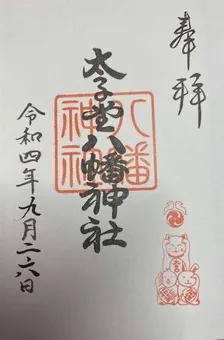 奉拝
太子堂八幡神社
八幡
神社
令和四年九月二六日